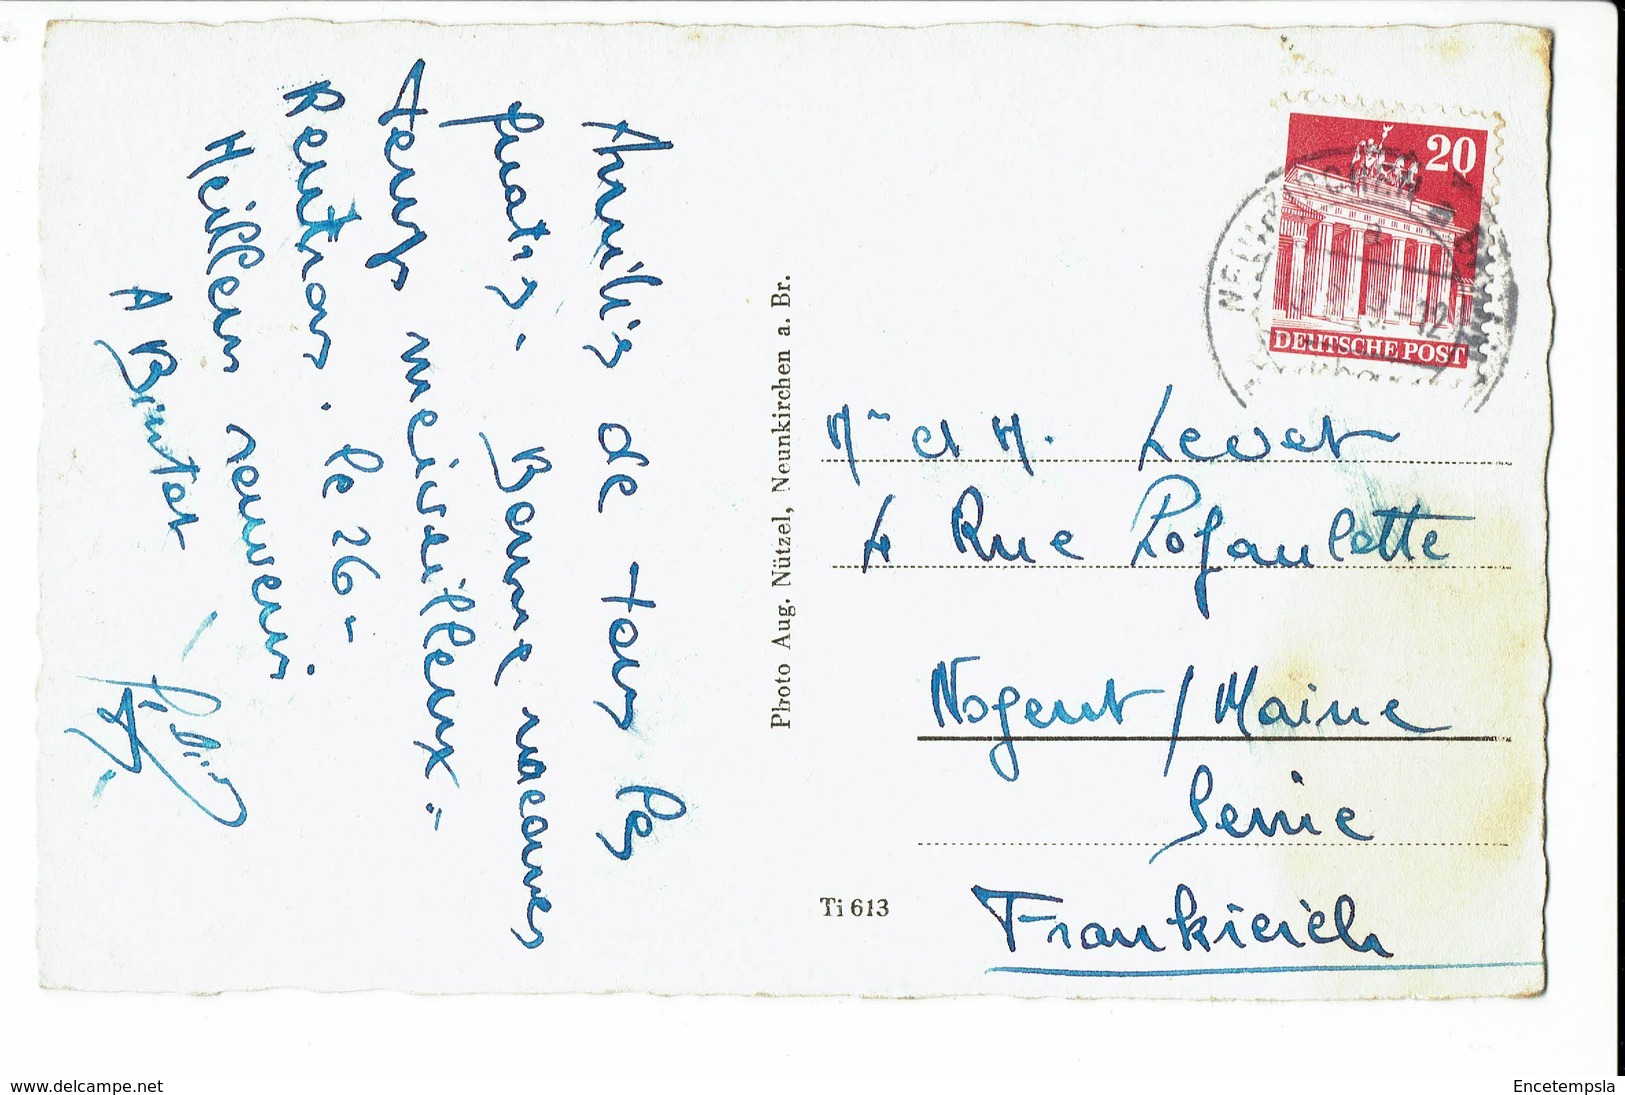 Amitiés de tous les
quatre. Bonne vacances
temps merveilleux =
Rentrons le 26 -
Meilleurs souvenirs
A Bientot
Photo Aug. Nützel, Neunkirchen a. Br.
Ti 613
20
DEUTSCHE POST
-12
Mr et M. Levet
4 Rue
Nogent / Marne
Seine
Frankreich
www.delcampe.net
Encetempsla